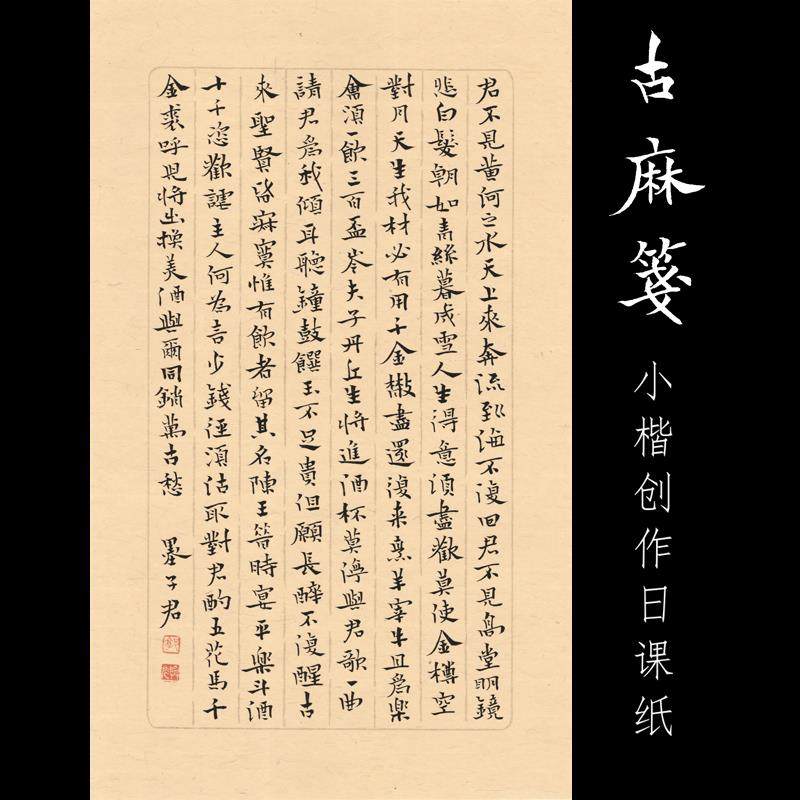 古麻笺
小楷创作日课纸
君不見黃河之水天上來奔流到海不復回君不見高堂明鏡
悲白髮朝如青絲暮成雪人生得意須盡歡莫使金樽空
對月天生我材必有用千金散盡還復来烹羊宰牛且爲樂
會須一飲三百盃岑夫子丹丘生將進酒杯莫渟與君歌一曲
請君爲我傾耳聽鐘鼓饌玉不足貴但願長醉不復醒古
來聖賢皆寂寞惟有飲者留其名陳王昔時宴平樂斗酒
十千恣歡謔主人何為言少錢徑須沽取對君酌五花馬千
金裘呼兒將出換美酒與爾同銷萬古愁 墨子君